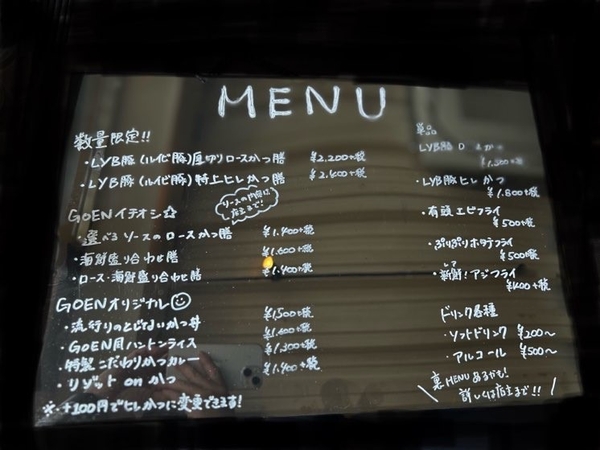 MENU
数量限定!!
・LYB豚(ルイビ豚)厚切りロースかつ膳 ¥2,200+税
・LYB豚(ルイビ豚)特上ヒレかつ膳 ¥2,400+税
GOENイチオシ☆
ソースの内容は店主まで!
・選べるソースのロースかつ膳 ¥1,400+税
・海鮮盛り合わせ膳 ¥1,600+税
・ロース・海鮮盛り合わせ膳 ¥1,400+税
GOENオリジナル
・流行りのとじないかつ丼 ¥1,500+税
・GOEN風ハントンライス ¥1,400+税
・特製こだわりかつカレー ¥1,300+税
・リゾット on かつ ¥1,400+税
※・+100円でヒレかつに変更できます!
単品
LYB豚ロ かつ ¥1,500+税
・LYB豚ヒレかつ ¥1,800+税
・有頭エビフライ ¥500+税
・ぷりぷりホタテフライ ¥500+税
・新鮮!アジフライ ¥400+税
ドリンク各種
・ソフトドリンク ¥200〜
・アルコール ¥500〜
裏MENUあるかも!
詳しくは店主まで!!